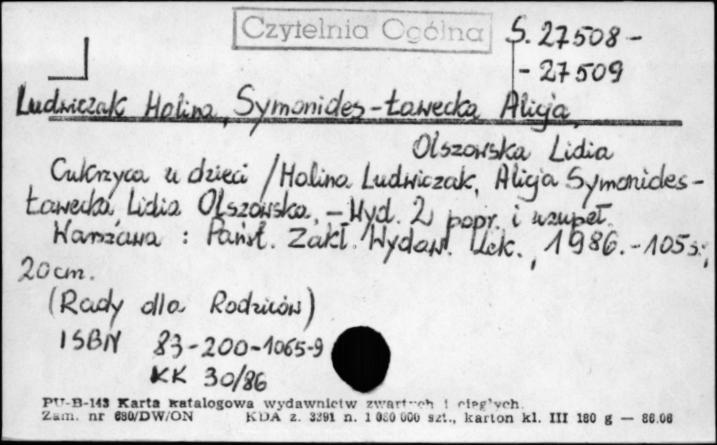 Czytelnia Ogólna
S. 27508 -
- 27509
Ludwiczak Halina, Symonides-Ławecka Alicja,
Olszowska Lidia
Cukrzyca u dzieci / Halina Ludwiczak, Alicja Symonides-
Ławecka, Lidia Olszowska. - Wyd. 2 popr. i uzupeł.
Warszawa : Państ. Zakł. Wydaw. Lek., 1986. - 105 s.;
20 cm.
(Rady dla Rodziców)
ISBN 83-200-1065-9
KK 30/86
PU-B-143 Karta katalogowa wydawnictw zwartych i ciągłych.
Zam. nr 680/DW/ON KDA z. 3391 n. 1 000 000 szt., karton kl. III 180 g — 86.06